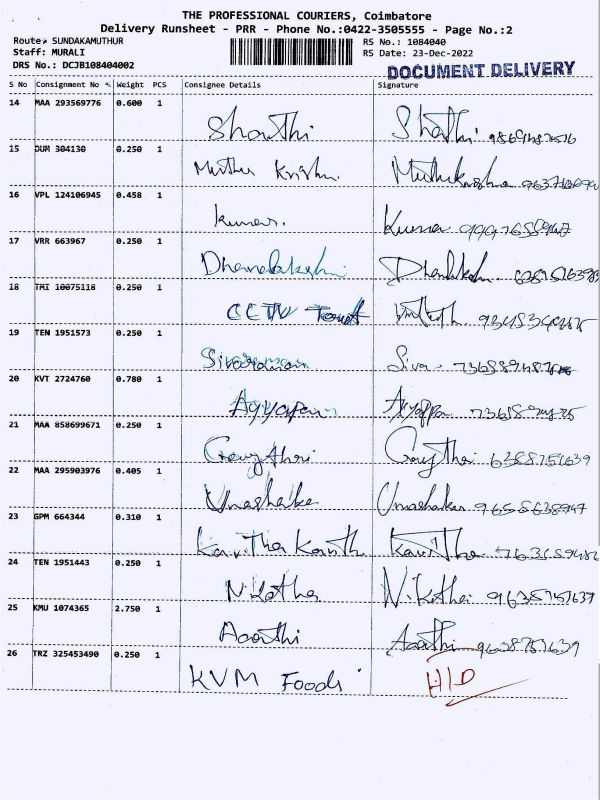 THE PROFESSIONAL COURIERS, Coimbatore
Delivery Runsheet - PRR - Phone No.:0422-3505555 - Page No.:2
Route: SUNDAKAMUTHUR
Staff: MURALI
DRS No.: DCJB108404002
RS No.: 1084040
RS Date: 23-Dec-2022
DOCUMENT DELIVERY
S No Consignment No Weight PCS Consignee Details Signature
14 MAA 293569776 0.600 1
Shanthi Shanthi
15 DUM 304130 0.250 1
Muthu Krishn. Muthukrishna
16 VPL 124106945 0.458 1
kumar. Kumar
17 VRR 663967 0.250 1
Dhanalakshmi
18 TMI 10075118 0.250 1
CCTV
19 TEN 1951573 0.250 1
Sivaraman Siva
20 KVT 2724760 0.780 1
Ayyapan Ayyappa
21 MAA 858699671 0.250 1
Gaythri Gaythri 6388751639
22 MAA 295903976 0.405 1
Umashake Umashakar
23 GPM 664344 0.310 1
Kavitha Kanth Kavitha
24 TEN 1951443 0.250 1
N.Kotha N.Kothai
25 KMU 1074365 2.750 1
Aarthi Aarthi 9638751639
26 TRZ 325453490 0.250 1
KVM Foods H/D